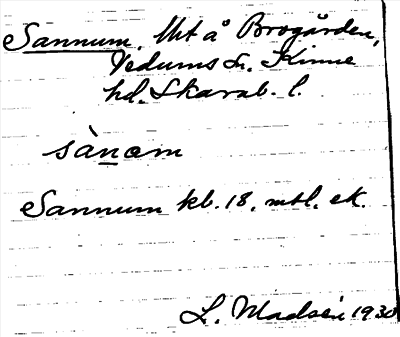 Sannum. Utt å Brogården,
Vedums sn. Kinne
hd. Skarab. l.
sànom
Sannum kb. 18. mtl. ek.
L. Madsén 1930